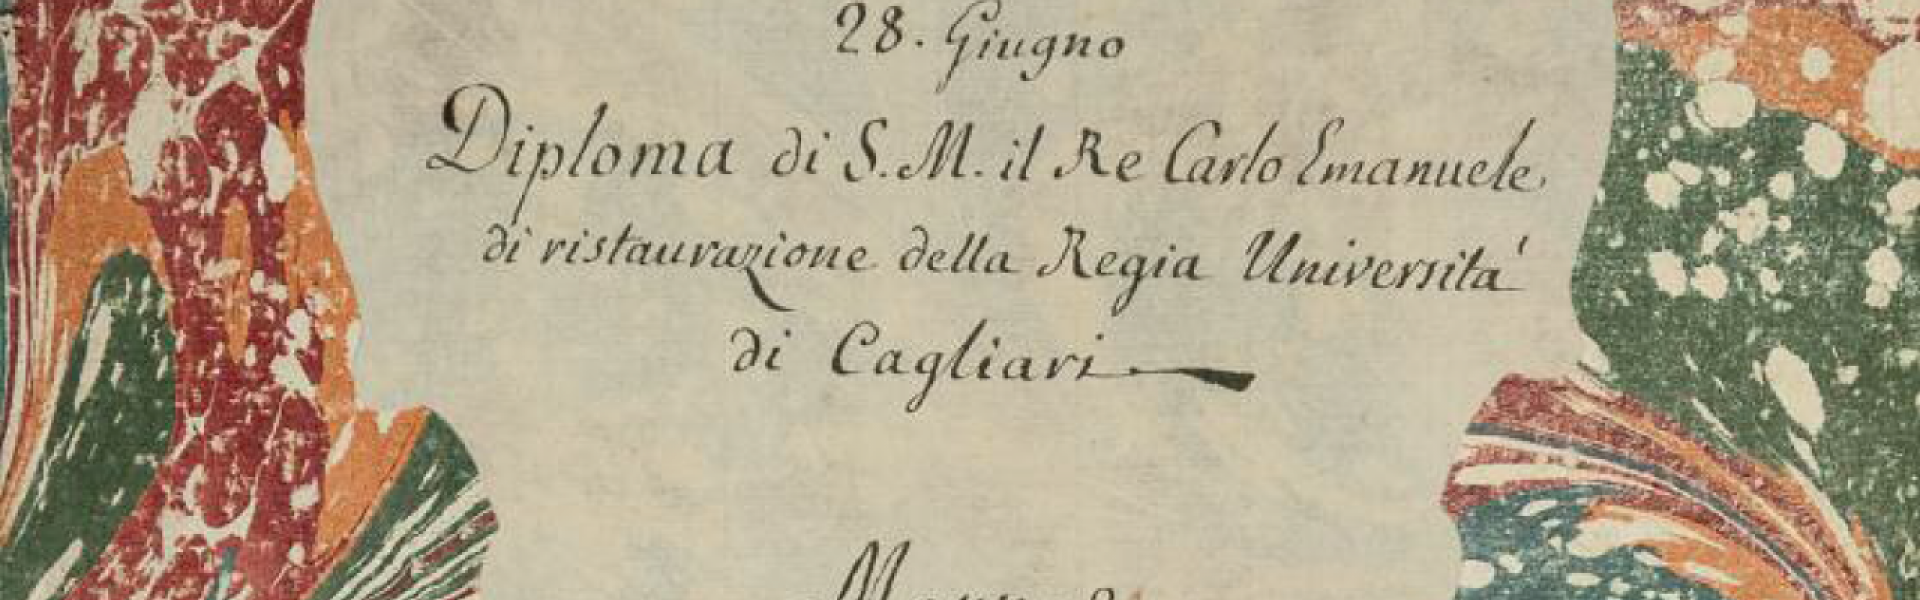 28. Giugno
Diploma di S. M. il Re Carlo Emanuele
di ristaurazione della Regia Università
di Cagliari